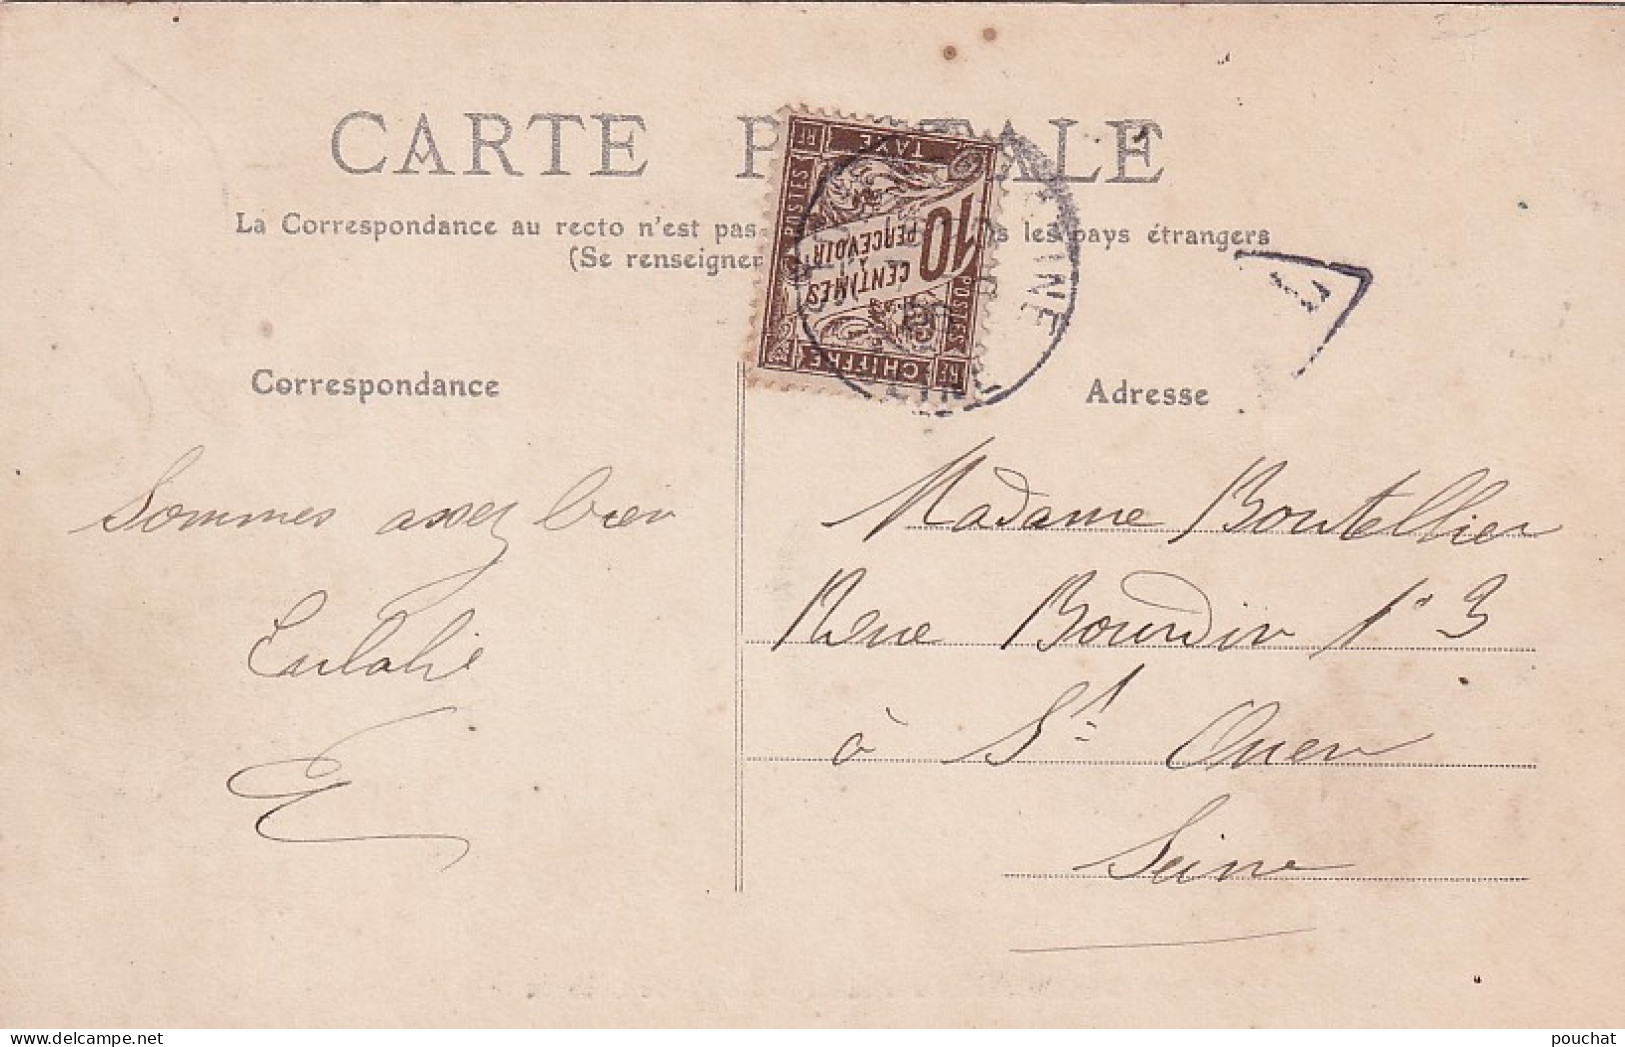 CARTE P TALE
La Correspondance au recto n'est pas s les pays étrangers
(Se renseigner
RF TAXE
POSTES
10
CENTIMES
À
PERCEVOIR
POSTES
CHIFFRE RF
SEINE
T
Correspondance
Adresse
Sommes assez bien
Eulalie
E
Madame Boutellier
Rue Bourdin n° 3
à St Ouen
Seine
pouchat